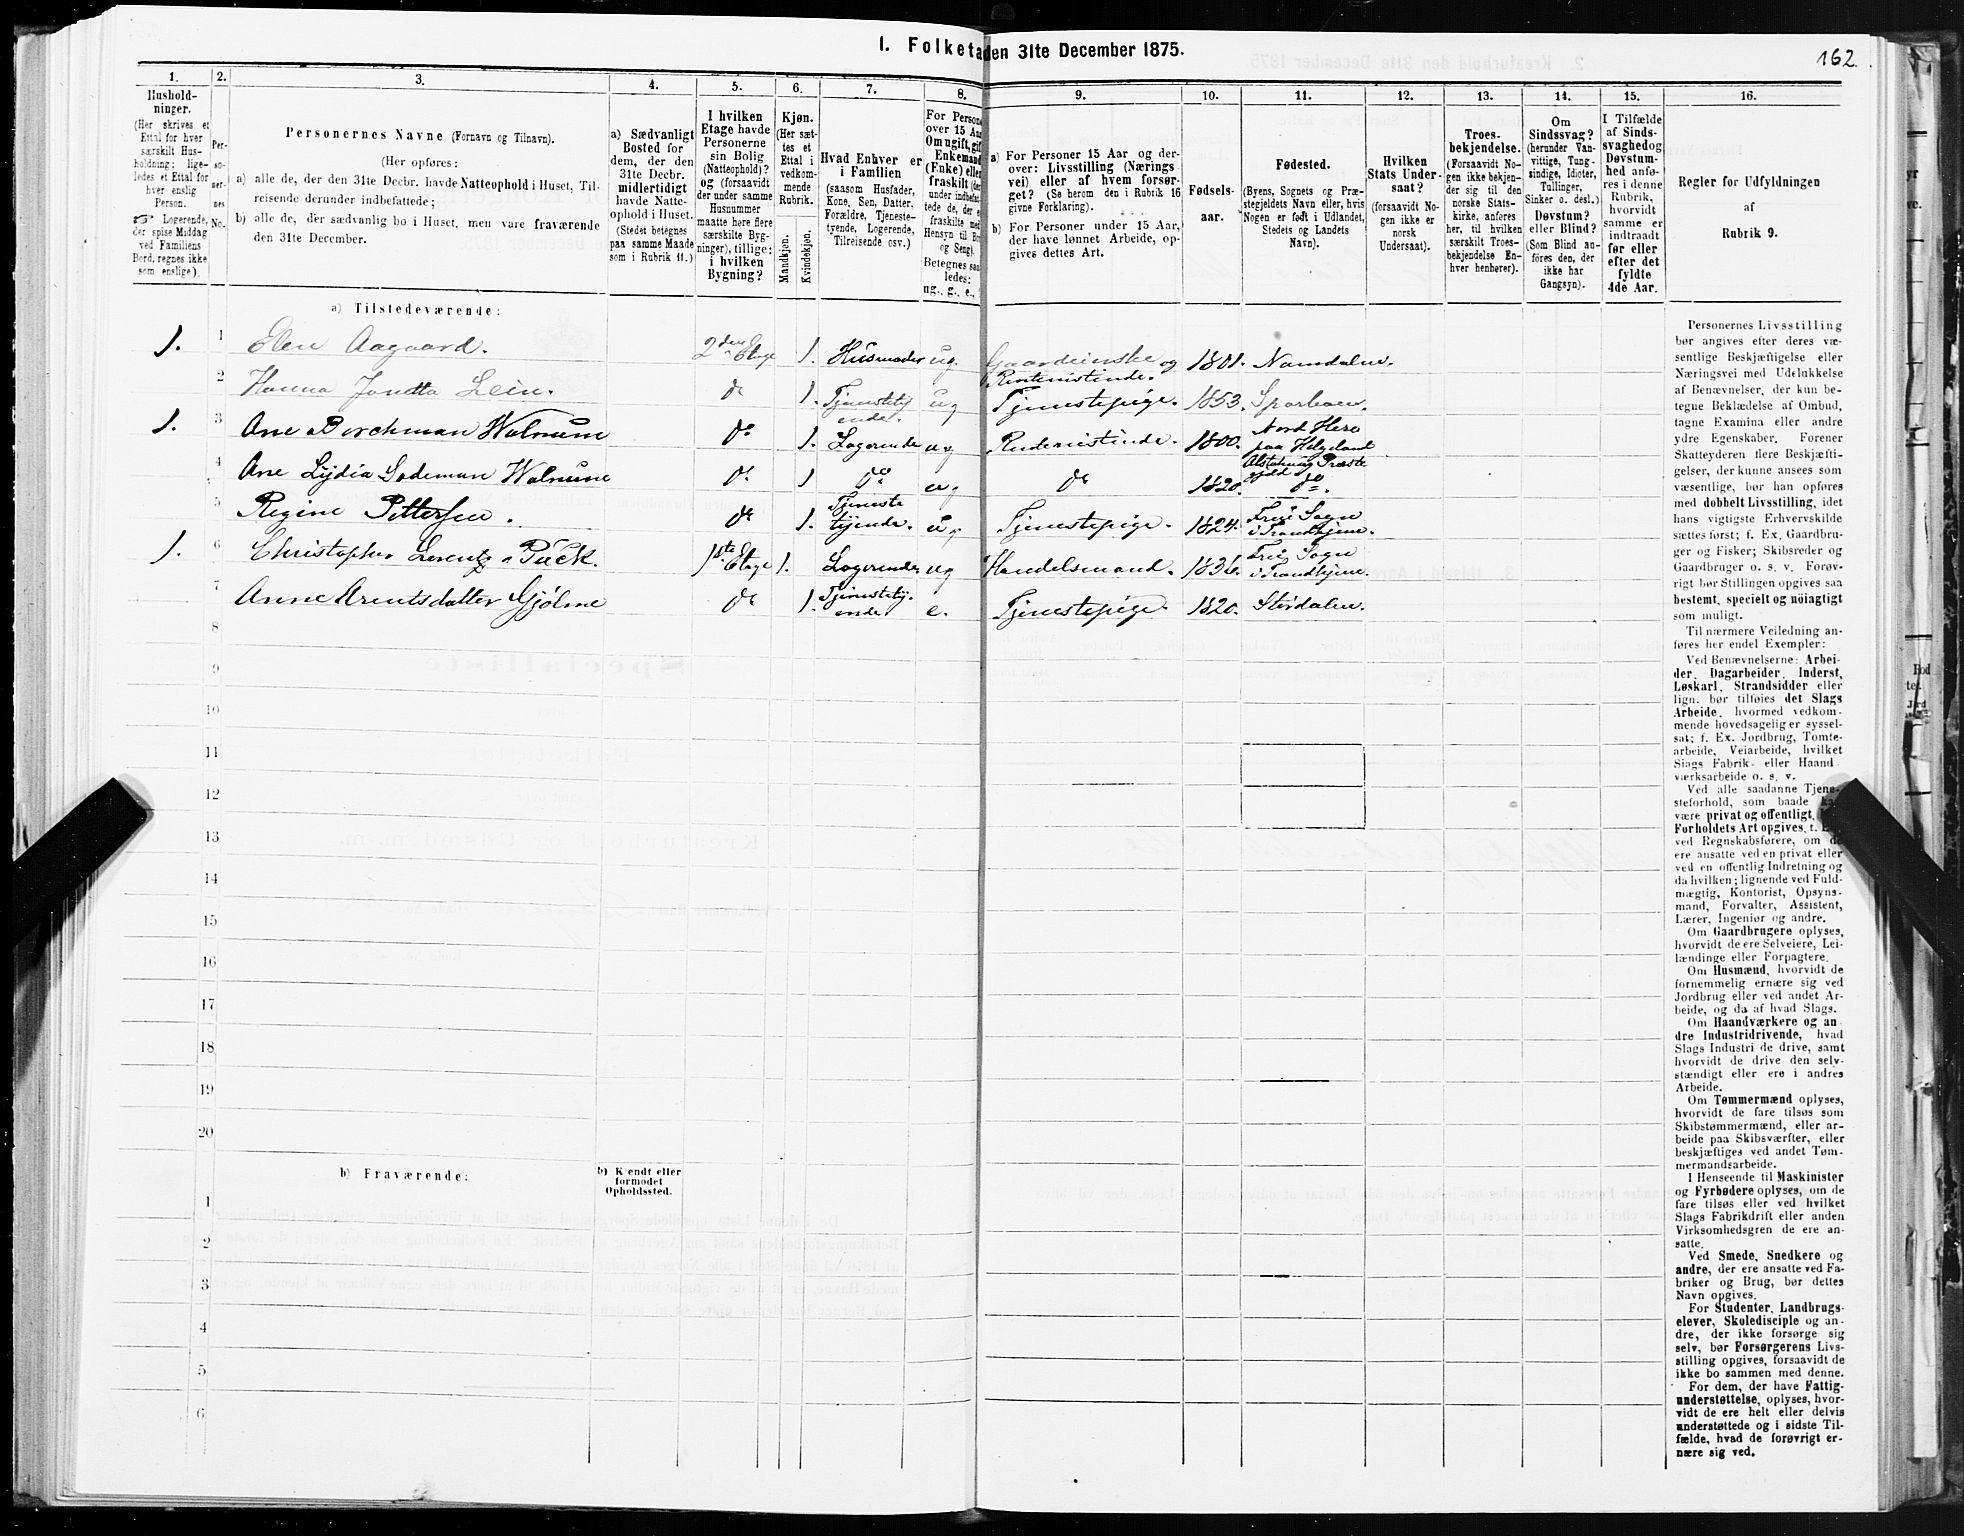 I. Folketa
den 31te December 1875.
162
1.
Hushold-
ninger.
(Her skrives et
Ettal for hver
særskilt Hus-
holdning; lige-
ledes et Ettal for
hver enslig
Person.
Logerende,
der spise Middag
ved Familiens
Bord, regnes ikke
som enslige).
2.
Per-
so-
ner-
nes
No.
3.
Personernes Navne (Fornavn og Tilnavn).
(Her opføres:
a) alle de, der den 31te Decbr. havde Natteophold i Huset, Til-
reisende derunder indbefattede;
b) alle de, der sædvanlig bo i Huset, men vare fraværende
den 31te December.
4.
a) Sædvanligt
Bosted for
dem, der den
31te Decbr.
midlertidigt
havde Natte-
ophold i Huset.
(Stedet betegnes
paa samme Maade
som i Rubrik 11.)
5.
I hvilken
Etage havde
Personerne
sin Bolig
(Natteophold)?
og (forsaavidt
der under samme
Husnummer
maatte høre flere
særskilte Byg-
ninger), tillige:
i hvilken
Bygning?
6.
Kjøn.
(Her sæt-
tes et
Ettal i
vedkom-
mende
Rubrik.
Mandkjøn.
Kvindekjøn.
7.
Hvad Enhver er
i Familien
(saasom Husfader,
Kone, Søn, Datter,
Forældre, Tjeneste-
tyende, Logerende,
Tilreisende osv.)
8.
For Persone
over 15 Aar
Om ugift, gif
Enkemand
(Enke) eller
fraskilt (der
under indbefat
tede de, der e
fraskilte med
Hensyn til Bo
og Seng).
Betegnes saa
ledes:
ug., g., e.,
9.
a) For Personer 15 Aar og der-
over: Livsstilling (Nærings
vei) eller af hvem forsør-
get? (Se herom den i Rubrik 16
givne Forklaring).
b) For Personer under 15 Aar,
der have lønnet Arbeide, op-
gives dettes Art.
10.
Fødsels-
aar.
11.
Fødested.
(Byens, Sognets og Præ-
stegjeldets Navn eller, hvis
Nogen er født i Udlandet,
Stedets og Landets
Navn).
12.
Hvilken
Stats Under-
saat?
(forsaavidt No-
gen ikke er
norsk
Undersaat).
13.
Troes-
bekjendelse.
(Forsaavidt No-
gen ikke bekjen-
der sig til den
norske Stats-
kirke, anføres
her, til hvilken
særskilt Troes-
bekjendelse En-
hver henhører).
14.
Om
Sindssvag?
(herunder Van-
vittige, Tung-
sindige, Idioter,
Tullinger,
Sinker o. desl.)
Døvstum?
eller Blind?
(Som Blind an-
føres den, der
ikke har
Gangsyn).
15.
I Tilfælde
af Sinds-
svaghed og
Døvstum-
hed anfø-
res i denne
Rubrik,
hvorvidt
samme er
indtraadt
før eller
efter det
fyldte
4de Aar.
16.
Regler for Udfyldningen
af
Rubrik 9.
a) Tilstedeværende:
1. 1 Elen Aagaard. 2den Etage 1. Husmoder ug. Gaardeinske og Rentenistinde. 1801. Namdalen.
2 Hanna Jonetta Lein. do 1. Tjenestety ende. ug Tjenestepige. 1853. Sparboen.
1. 3 Ane Borchman Walnum do 1. Logerende ug Rentenistinde. 1800. Nord Herø paa Helgeland
4 Ane Lydia Sodeman Walnum do 1 do ug do 1820. Alstahaug Præste gjeld do.
5 Regine Pettersen. do 1. Tjeneste tyende. ug Tjenestepige. 1824. Frue Sogn i Trondhjem.
1. 6 Christopher Lorentz Pück. 1ste Etage 1. Logerende ug Handelsmand. 1836. Frue Sogn i Trondhjem.
7 Anne Arentsdatter Gjølme do 1. Tjenestety. ende e. Tjenestepige. 1820. Størdalen.
8
9
10
11
12
13
14
15
16
17
18
19
20
b) Fraværende:
b) Kjendt eller
formodet
Opholdssted.
1
2
3
4
5
6
Personernes Livsstilling
bør angives efter deres væ-
sentlige Beskjæftigelse eller
Næringsvei med Udelukkelse
af Benævnelser, der kun be-
tegne Beklædelse af Ombud,
tagne Examina eller andre
ydre Egenskaber. Forener
Skatteyderen flere Beskjæfti-
gelser, der kunne ansees som
væsentlige, bør han opføres
med dobbelt Livsstilling, idet
hans vigtigste Erhvervskilde
sættes først; f. Ex. Gaardbru-
ger og Fisker; Skibsreder og
Gaardbruger o. s. v. Forøv-
rigt bør Stillingen opgives saa
bestemt, specielt og nöiagtigt
som muligt.
Til nærmere Veiledning an-
føres her endel Exempler:
Ved Benævnelserne: Arbei-
der, Dagarbeider, Inderst,
Løskarl, Strandsidder eller
lign. bør tilføies det Slags
Arbeide, hvormed vedkom-
mende hovedsagelig er syssel-
sat; f. Ex. Jordbrug, Tomte-
arbeide, Veiarbeide, hvilket
Slags Fabrik- eller Haand-
værksarbeide o. s. v.
Ved alle saadanne Tjene-
steforhold, som baade
være privat og offentligt,
Forholdets Art opgives, t.
ved Regnskabsførere, om de
ere ansatte ved en privat eller
ved en offentlig Indretning og
da hvilken; lignende ved Fuld-
mægtig, Kontorist, Opsyns-
mand, Forvalter, Assistent,
Lærer, Ingeniør og andre.
Om Gaardbrugere oplyses,
hvorvidt de ere Selveiere, Lei-
lændinge eller Forpagtere.
Om Husmænd, hvorvidt de
fornemmelig ernære sig ved
Jordbrug eller ved andet Ar-
beide, og da af hvad Slags.
Om Haandværkere og an-
dre Industridrivende, hvad
Slags Industri de drive, samt
hvorvidt de drive den selv-
stændigt eller ere i andres
Arbeide.
Om Tømmermænd oplyses,
hvorvidt de fare tilsøs som
Skibstømmermænd, eller ar-
beide paa Skibsværfter, eller
beskjæftiges ved andet Tøm-
mermandsarbeide.
I Henseende til Maskinister
og Fyrbødere oplyses, om de
fare tilsøs eller ved hvilket
Slags Fabrikdrift eller anden
Virksomhedsgren de ere an-
satte.
Ved Smede, Snedkere og
andre, der ere ansatte ved Fa-
briker og Brug, bør dettes
Navn opgives.
For Studenter, Landbrugs-
elever, Skoledisciple og an-
dre, der ikke forsørge sig
selv, bør Forsørgerens Livs-
stilling opgives, forsaavidt de
ikke bo sammen med denne.
For dem, der have Fattig-
understøttelse, oplyses, hvor-
vidt de ere helt eller delvis
understøttede og i sidste Til-
fælde, hvad de forøvrigt er-
nære sig ved.